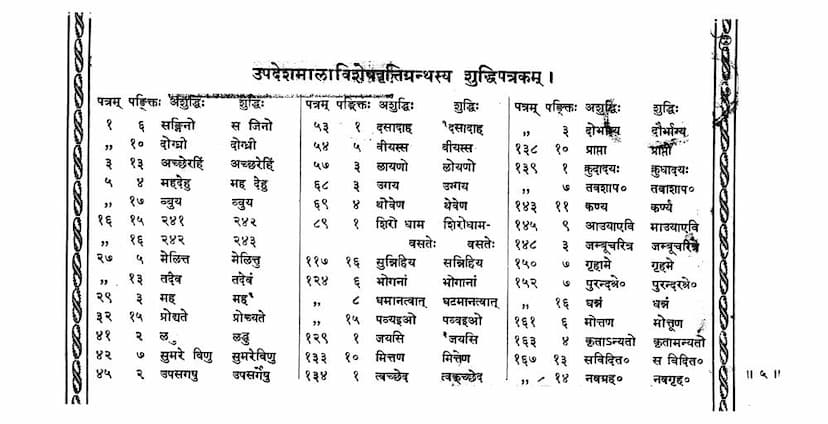 उपदेशमालाविशेषवृत्तिग्रन्थस्य शुद्धिपत्रकम् ।
पत्रम् पङ्क्तिः अशुद्धिः शुद्धिः
१ ६ सज्जिनो स जिनो
„ १० दोग्ध्रो दोग्ध्री
३ १३ अच्छेरहिं अच्छरेहिं
५ ४ महदेहु मह देहु
„ १७ व्वुय व्वुय
१६ १५ २४१ २४२
„ १६ २४२ २४३
२७ ५ मेलित्त मेलित्तु
„ १३ तदैव तदेवं
२९ ३ मह मह
३२ १५ प्रोद्यते प्रोच्यते
४१ २ लु लद्धु
४२ ७ सुमरे विणु सुमरेविणु
४५ २ उपसगषु उपसर्गेषु
पत्रम् पङ्क्तिः अशुद्धिः शुद्धिः
५३ १ दसादाह दसादाह
५४ ५ वीयस्स बीयस्स
५७ ३ लायणो लोयणो
६८ ३ उगय उग्गय
६९ ४ थोवेण थेवेण
८९ १ शिरो धाम शिरोधाम-
वसतेः वसतेः
११७ १६ सुन्निहिय सन्निहिय
१२४ ६ भोगनां भोगानां
„ ८ घमानत्वात् घटमानत्वात्
„ १५ पव्यइओ पव्वइओ
१२९ १ जयसि जयसि
१३३ १० मित्तण मित्तेण
१३४ १ त्वच्छेद त्वक्च्छेद
पत्रम् पङ्क्तिः अशुद्धिः शुद्धिः
„ ३ दोर्भाग्य दौर्भाग्य
१३८ १० प्राप्ता प्राप्तौ
१३९ १ क्रुदादयः क्रुधादयः
„ ७ तवशाप० तवाशाप०
१४३ ११ कण्य कर्ण्य
१४५ ९ आउयाएवि माउयाएवि
१४८ ३ जम्बूचरित्र जम्बूचरित्रे
१५० ७ गृहामे गृहमे
१५२ ७ पुरन्दश्रे० पुरन्दरश्रे०
„ १६ धन्नं धन्नं
१६१ ६ मोत्तण मोत्तूण
१६३ ४ कृताऽन्यतो कृतामन्यतो
१६७ १३ सविदित० स विदित०
„ १४ नवग्रह० नवगृह०
॥ ५ ॥